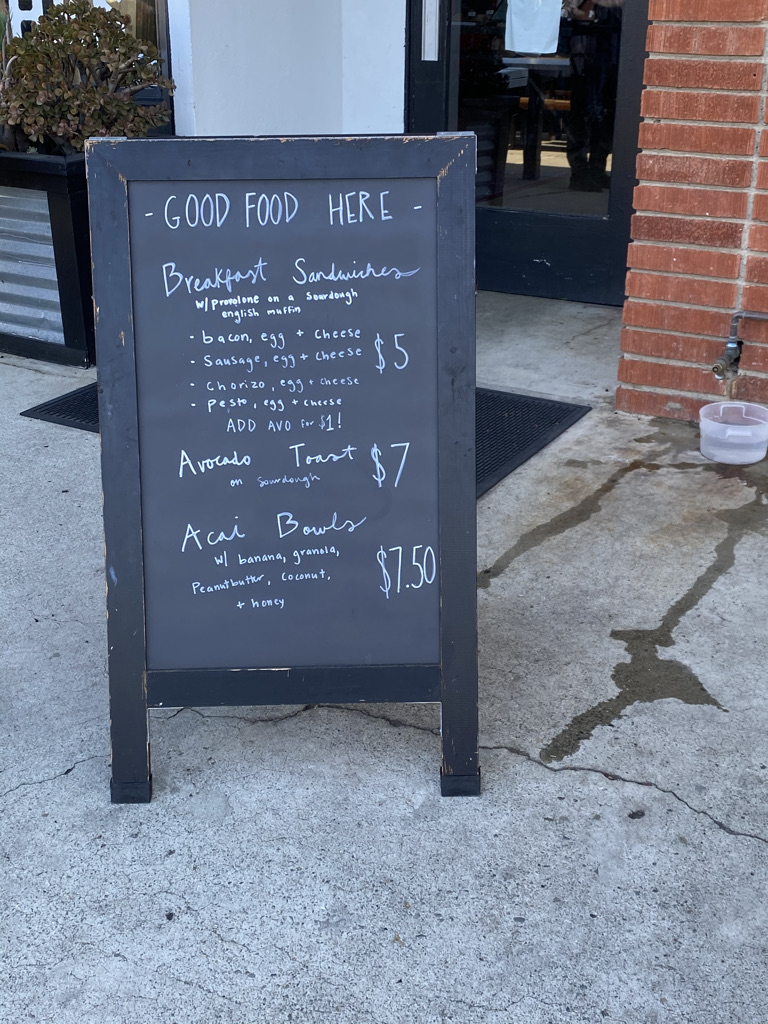 - GOOD FOOD HERE -
Breakfast Sandwiches
w/ Provolone on a Sourdough
english muffin
- bacon, egg + cheese
- Sausage, egg + cheese $5
- Chorizo, egg + cheese
- Pesto, egg + cheese
ADD AVO for $1!
Avocado Toast $7
on Sourdough
Acai Bowls
w/ banana, granola,
Peanutbutter, Coconut, $7.50
+ honey